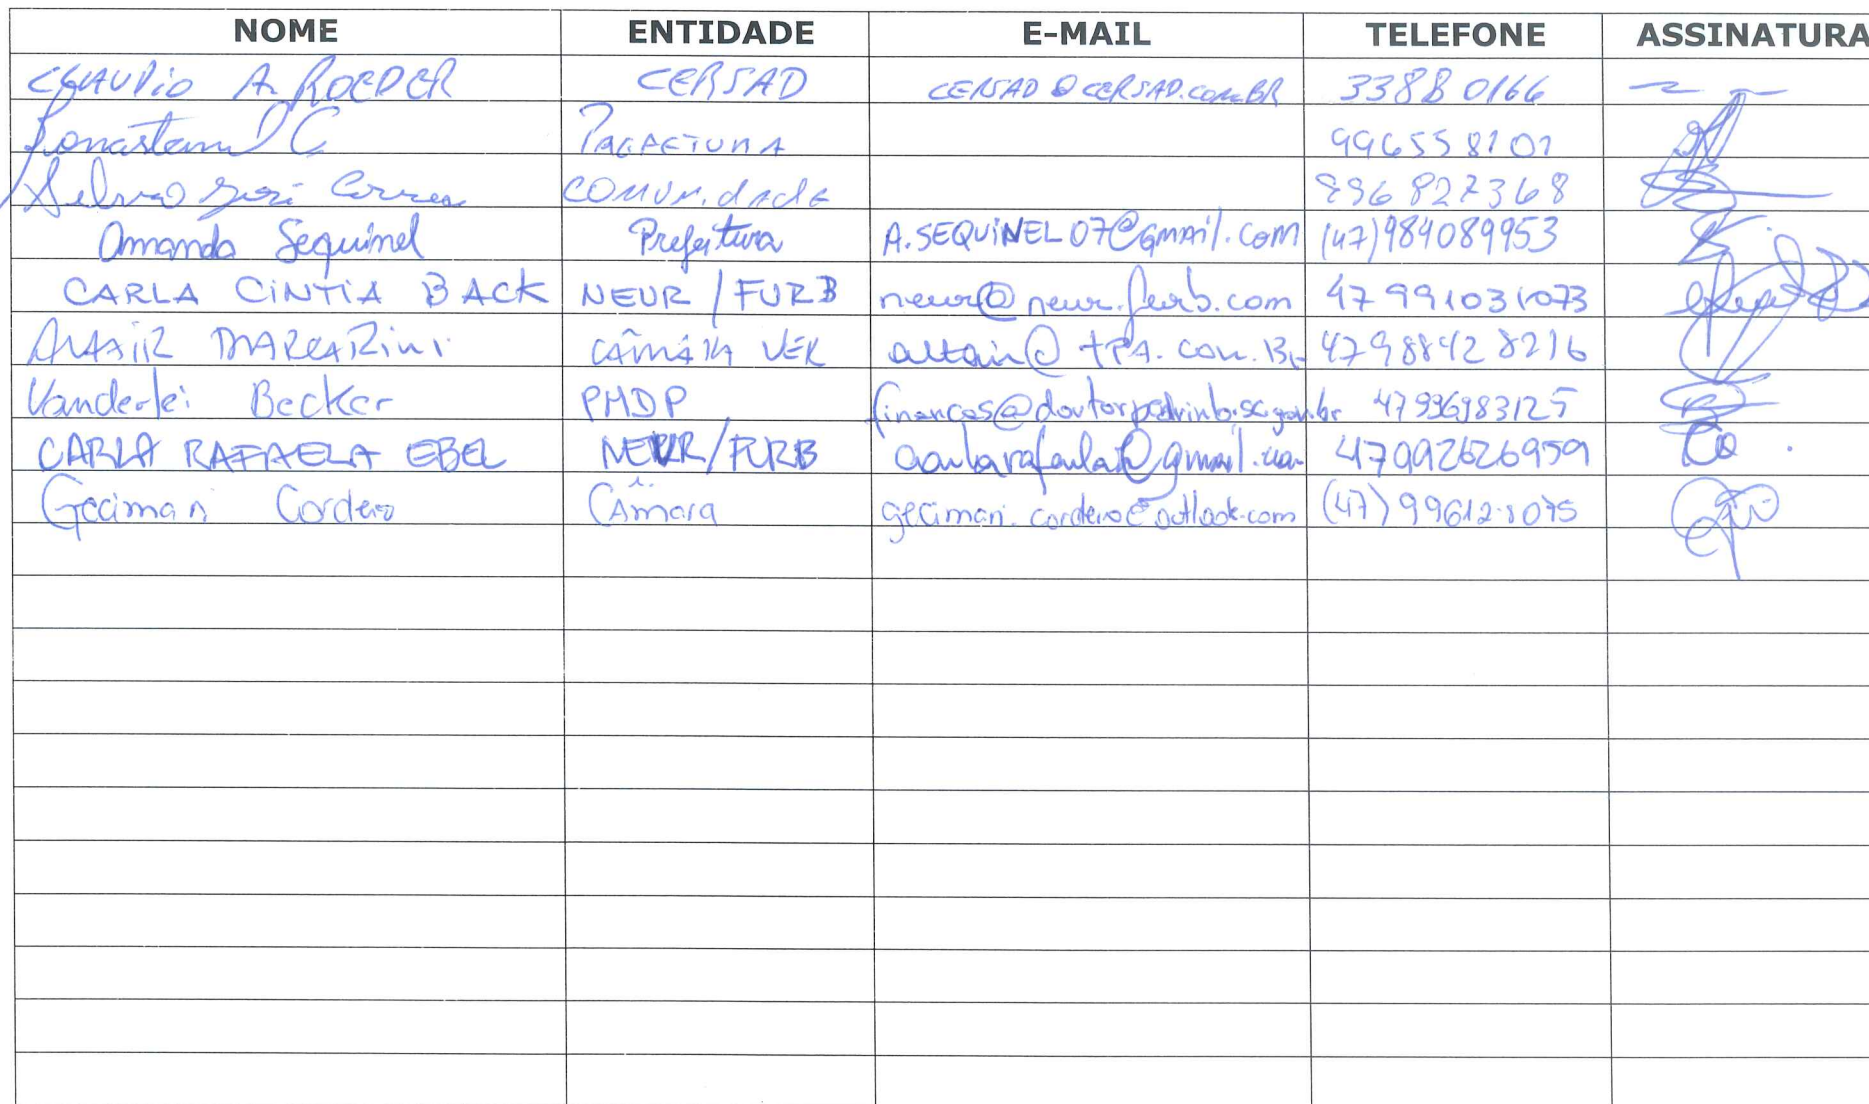 NOME ENTIDADE E-MAIL TELEFONE ASSINATURA
CLAUDIO A. ROEDER CERSAD CERSAD@CERSAD.COM.BR 33880166
C. 996558101
José Correa comunidade 996827368
Amanda Sequinel Prefeitura A.SEQUINEL07@Gmail.com (47)984089953
CARLA CINTIA BACK NEUR / FURB neur@neur.furb.com 47 991031073
ALTAIR MARCARINI CÂMARA VER altair@TPA.com.Br 47988428216
Vanderlei Becker PMDP financas@doutorpedrinho.sc.gov.br 47996983125
CARLA RAFAELA EBEL NEUR/FURB 47992626959
Gecimari Cordeiro Câmara gecimari.cordeiro@outlook.com (47) 99612-1075